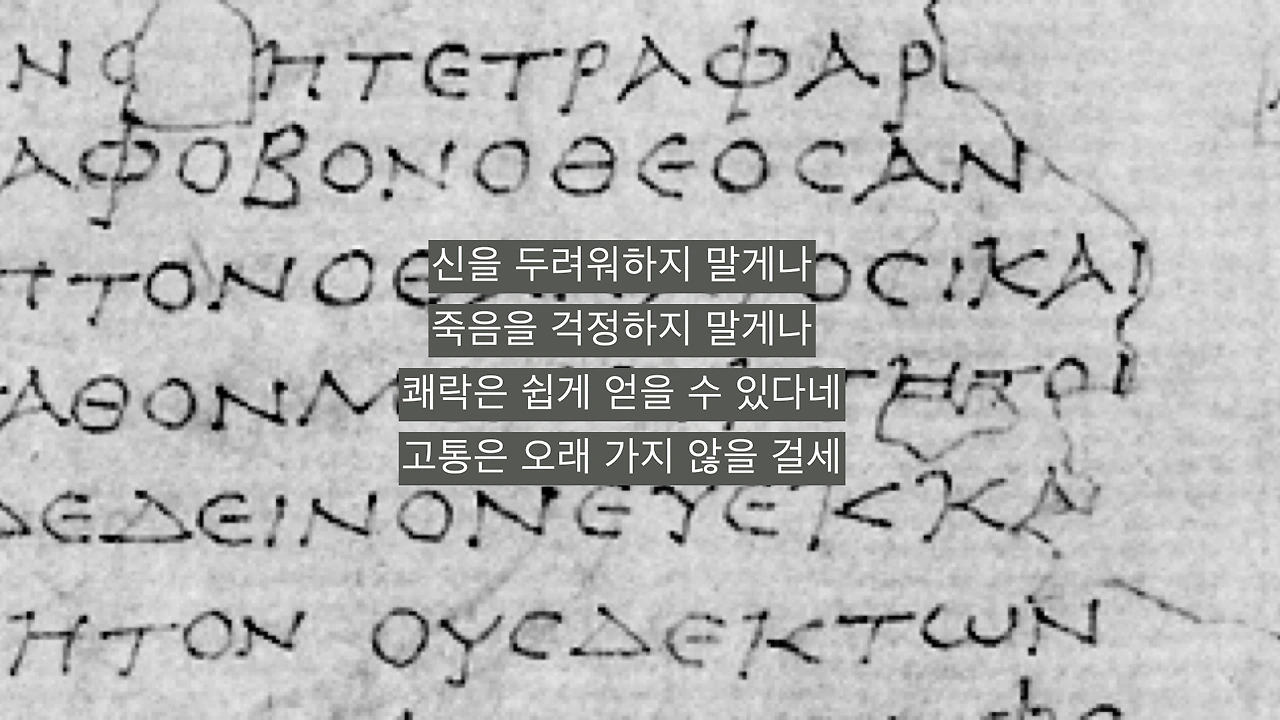 ΝΟ ΗΤΕΤΡΑΦΑΡ
ΑΦΟΒΟΝΟΘΕΟCΑΝ
ΗΤΟΝΟΘ ΟCΙΚΑΙ
신을 두려워하지 말게나
죽음을 걱정하지 말게나
ΑΘΟΝΜ ΤΗΤΟΙ
쾌락은 쉽게 얻을 수 있다네
고통은 오래 가지 않을 걸세
ΔΕΔΕΙΝΟΝΕΥΕΚΚΑ
ΗΤΟΝ ΟΥCΔΕΚΤΩΝ